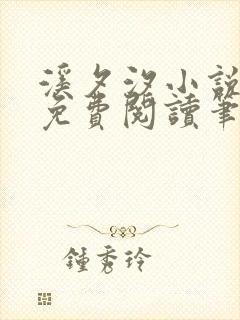 溪夕汐小說
免費閱讀筆
鍾秀玲